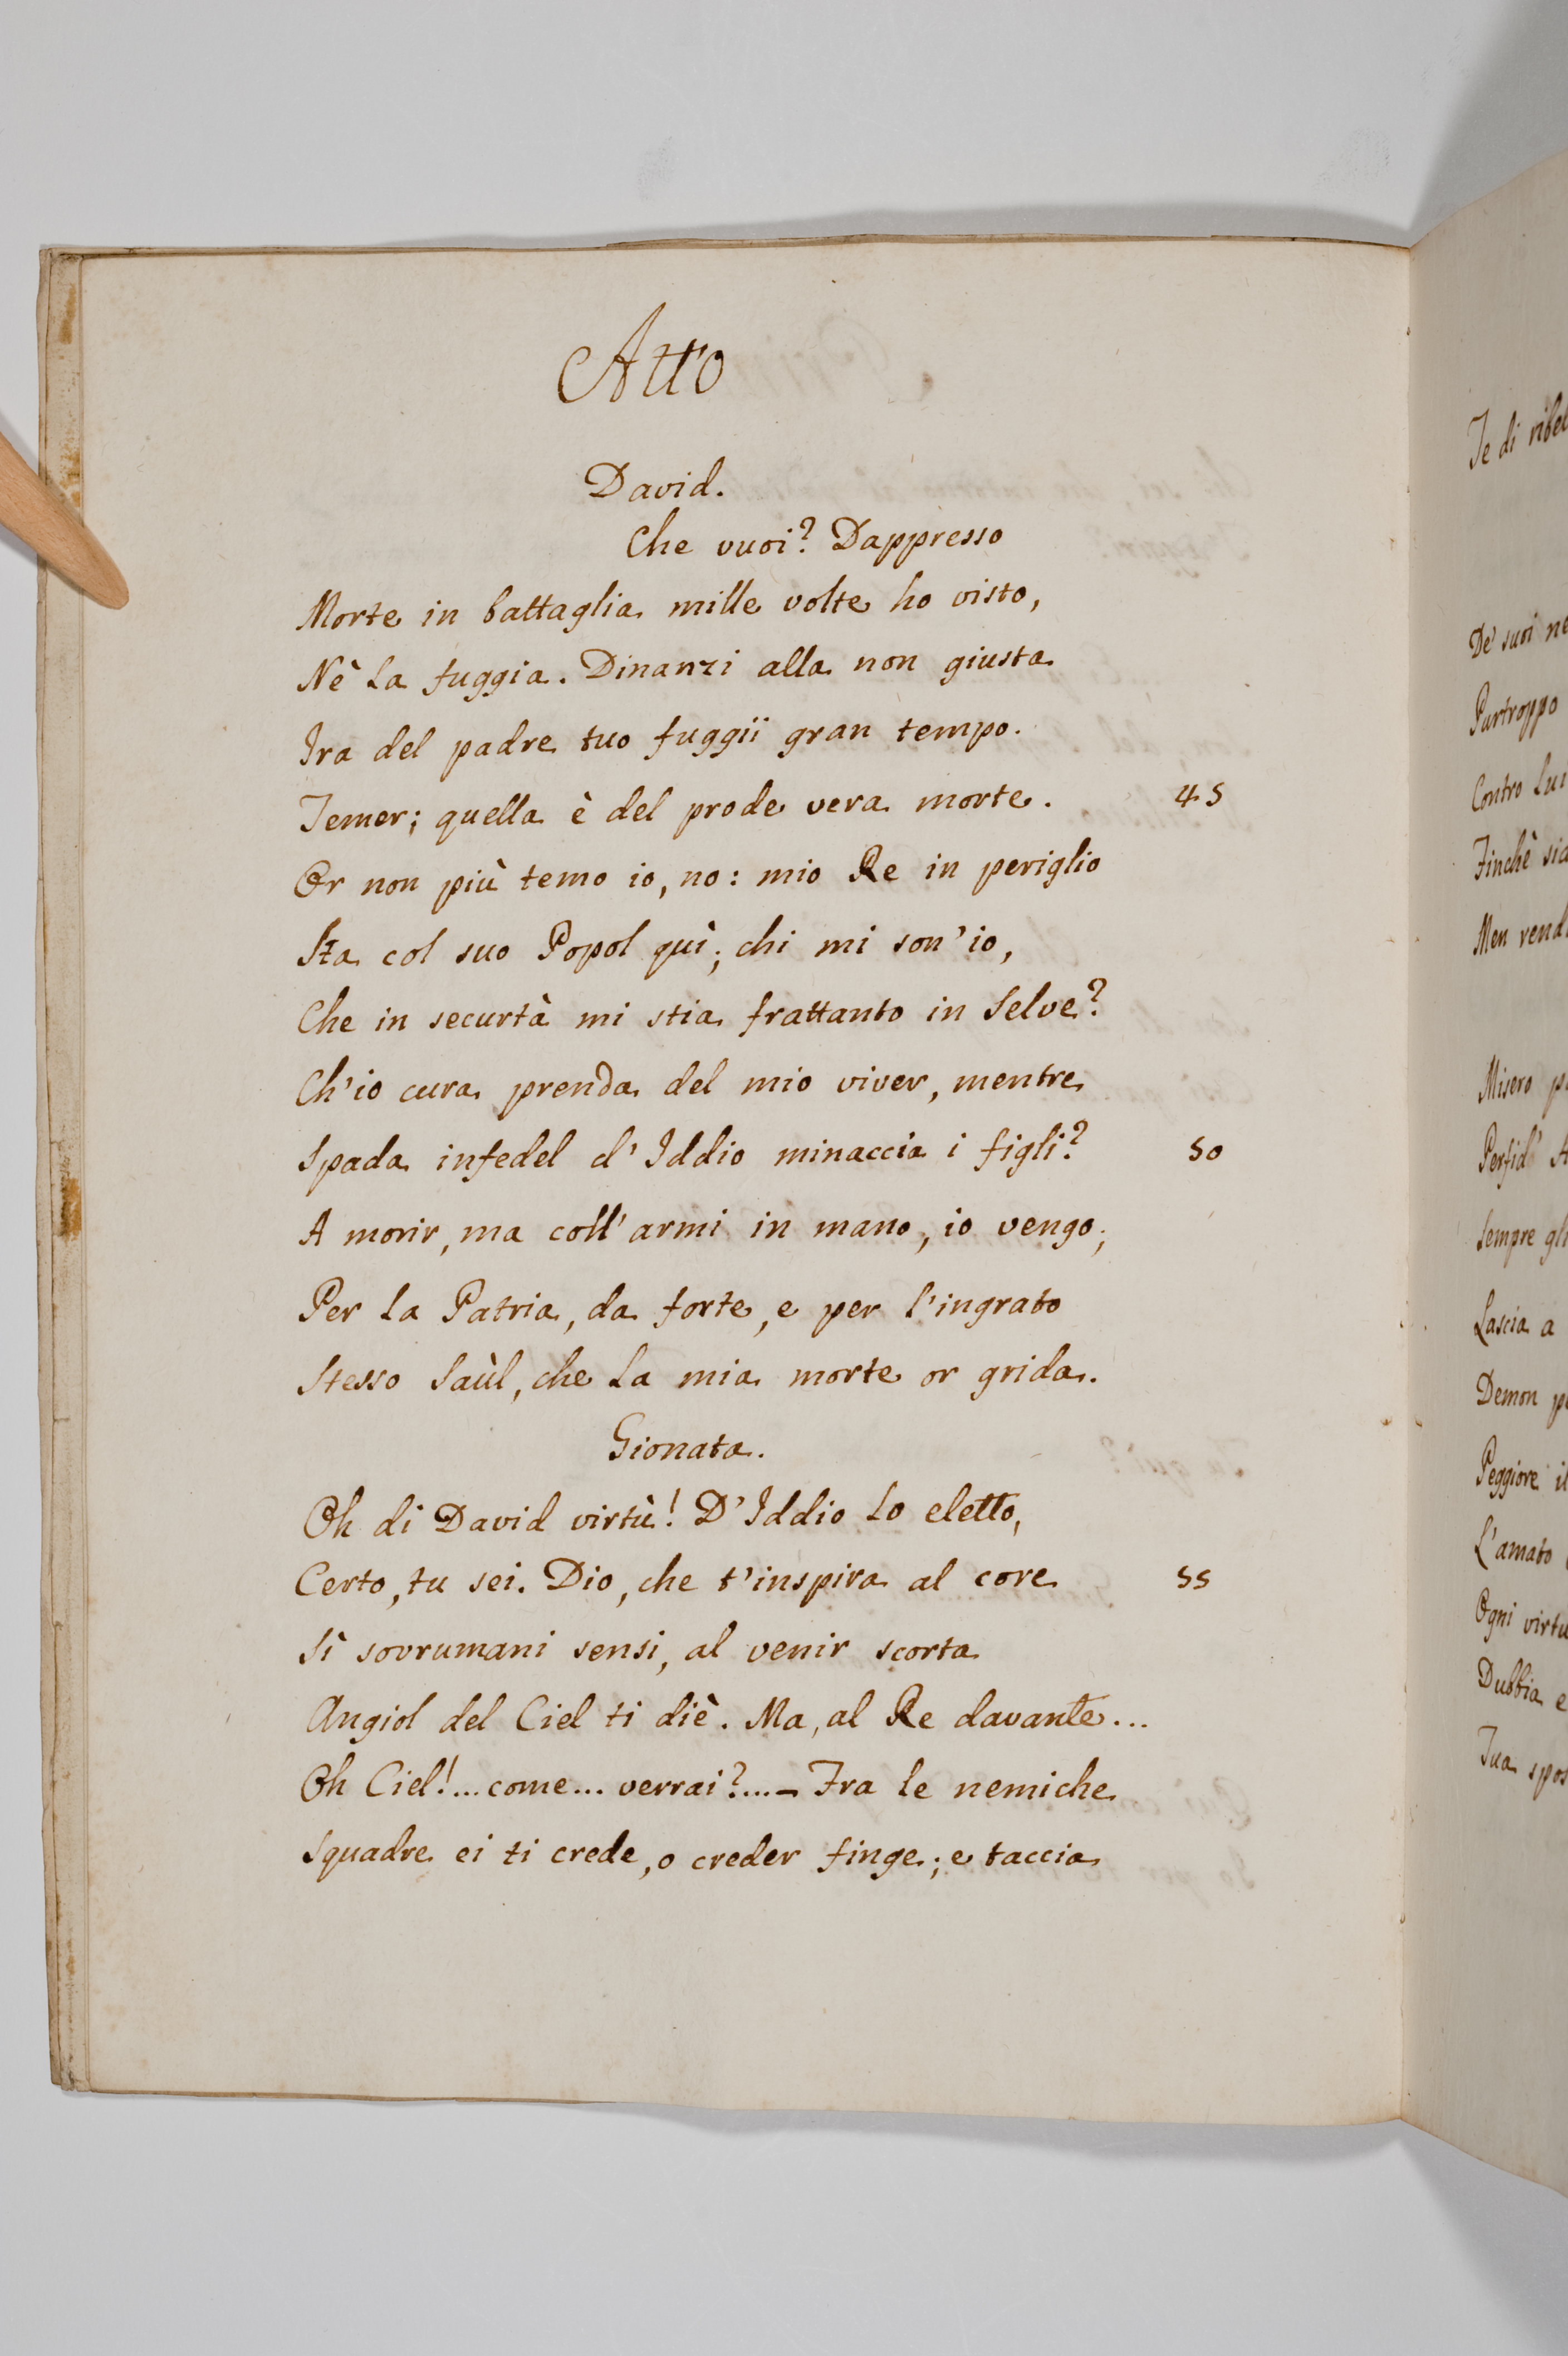 Atto
David.
Che vuoi? Dappresso
Morte in battaglia mille volte ho visto,
Nè la fuggia. Dinanzi alla non giusta
Ira del padre tuo fuggii gran tempo.
Temer; quella è del prode vera morte. 45
Or non più temo io, no: mio Re in periglio
Sta col suo Popol quì; chi mi son'io,
Che in securtà mi stia frattanto in selve?
Ch'io cura prenda del mio viver, mentre
Spada infedel d'Iddio minaccia i figli? 50
A morir, ma coll'armi in mano, io vengo;
Per la Patria, da forte, e per l'ingrato
Stesso Saùl, che la mia morte or grida.
Gionata.
Oh di David virtù! D'Iddio lo eletto,
Certo, tu sei. Dio, che t'inspira al core 55
Sì sovrumani sensi, al venir scorta
Angiol del Ciel ti diè. Ma, al Re davante...
Oh Ciel!... come... verrai?...- Fra le nemiche
Squadre ei ti crede, o creder finge; e taccia
Te di
De' suoi
Purtroppo
Contro lui
Finchè
Men
Misero
Sempre
Lascia a
Demon
Peggiore
L'amato
Ogni
Dubbia e
Tua